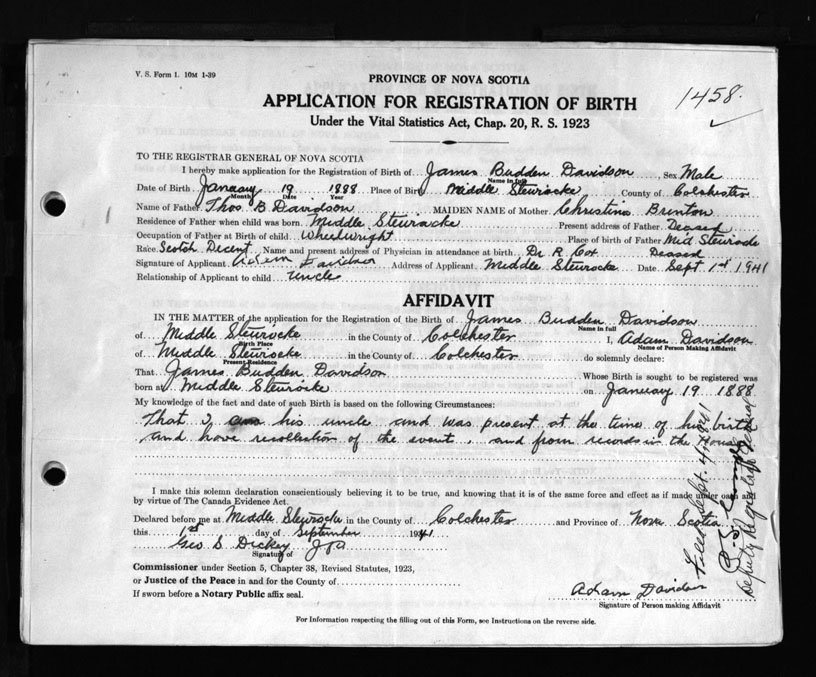 V. S. Form 1. 10M 1-39
PROVINCE OF NOVA SCOTIA
APPLICATION FOR REGISTRATION OF BIRTH
1458.
Under the Vital Statistics Act, Chap. 20, R. S. 1923
TO THE REGISTRAR GENERAL OF NOVA SCOTIA
I hereby make application for the Registration of Birth of James Budden Davidson, Sex Male
Name in full
Date of Birth January 19 1888 Place of Birth Middle Stewiacke County of Colchester
Month Date Year
Name of Father Thos. B Davidson MAIDEN NAME of Mother Christina Brenton
Residence of Father when child was born Middle Stewiacke Present address of Father Deased
Occupation of Father at Birth of child Wheelwright Place of birth of Father Mid Stewiacke
Race Scotch Decent Name and present address of Physician in attendance at birth Dr R Cox Deased
Signature of Applicant Adam Davidson Address of Applicant Middle Stewiacke Date Sept 1st 1941
Relationship of Applicant to child Uncle
AFFIDAVIT
IN THE MATTER of the application for the Registration of the Birth of James Budden Davidson
Name in full
of Middle Stewiacke in the County of Colchester I, Adam Davidson
Birth Place Name of Person Making Affidavit
of Middle Stewiacke in the County of Colchester do solemnly declare:
Present Residence
That James Budden Davidson Whose Birth is sought to be registered was
born at Middle Stewiacke on January 19 1888
My knowledge of the fact and date of such Birth is based on the following Circumstances:
That I am his uncle and was present at the time of his birth
and have recollection of the event, and from records in the House
I make this solemn declaration conscientiously believing it to be true, and knowing that it is of the same force and effect as if made under oath and
by virtue of The Canada Evidence Act.
Declared before me at Middle Stewiacke in the County of Colchester and Province of Nova Scotia
this 1st day of September 1941
Geo S. Dickey J P
Signature of
Commissioner under Section 5, Chapter 38, Revised Statutes, 1923,
or Justice of the Peace in and for the County of
If sworn before a Notary Public affix seal.
Adam Davidson
Signature of Person making Affidavit
For Information respecting the filling out of this Form, see Instructions on the reverse.
Filed Sept. 4, 1941
Deputy Registrar General